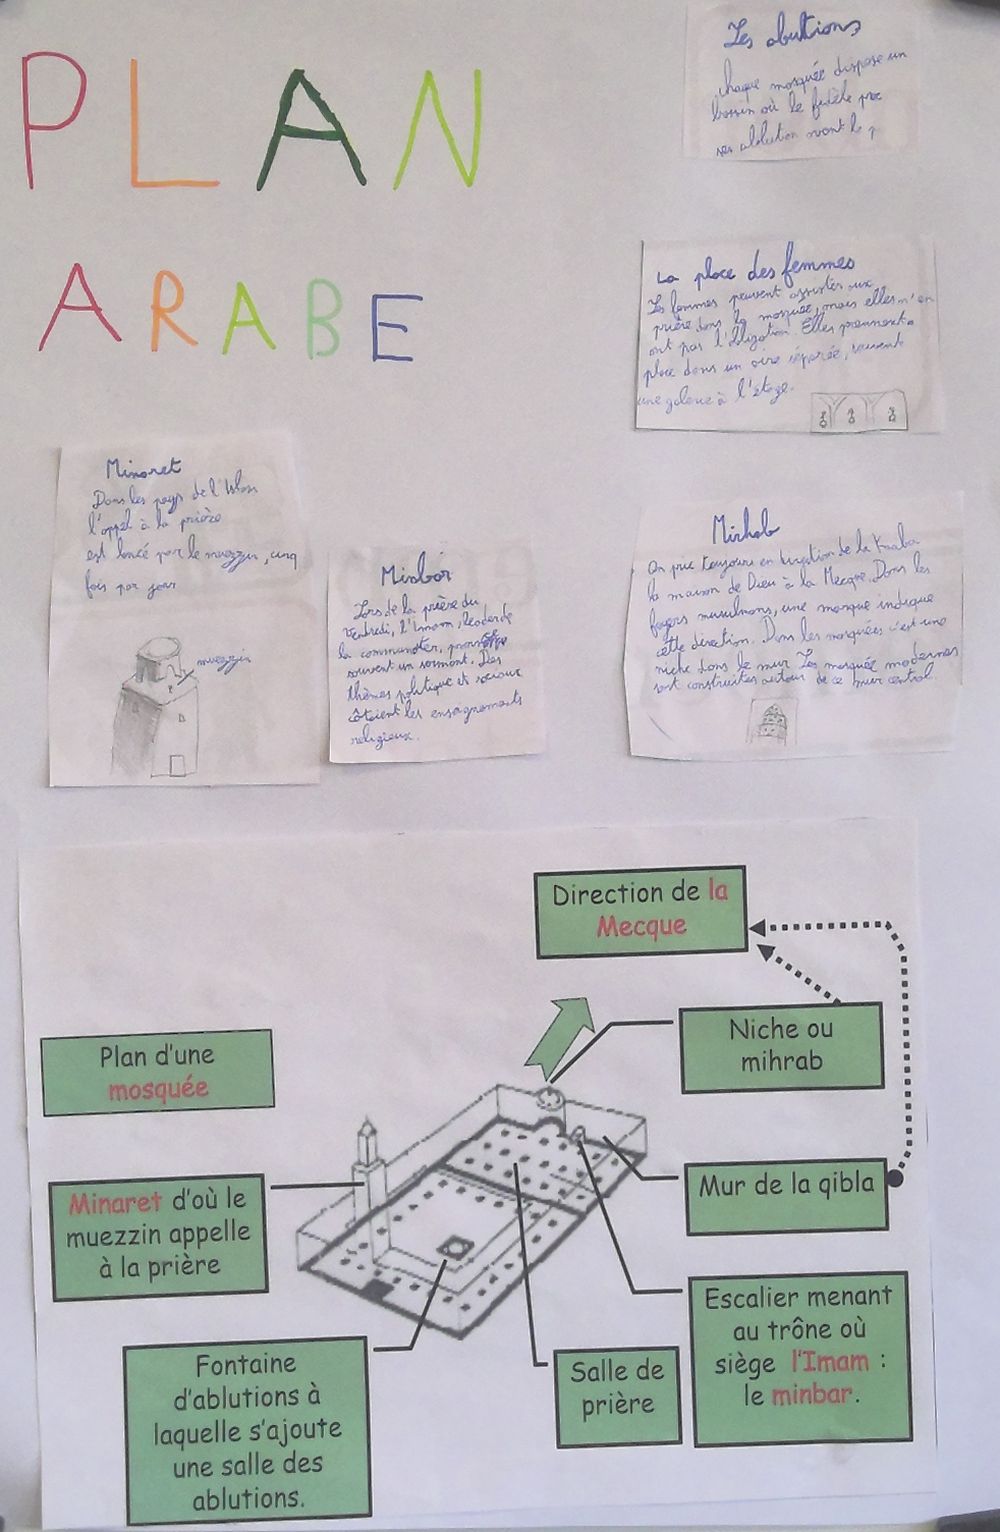 PLAN
ARABE
Les abultions
chaque mosquée dispose un
bassin où le fidèle
ses ablution avant le
La place des femmes
Les femmes peuvent assistés aux
prière dans la mosquée, mais elles n'en
ont pas l'obligation. Elles prennent
place dans un aire séparée, souvent
une galerie à l'étage.
Minaret
Dans les pays de l'Islam
l'appel à la prière
est lancé par le muezzin, cinq
fois par jour
muezzin
Minbar
Lors de la prière du
vendredi, l'Imam, leader de
la communauter,
souvent un sermont. Des
thèmes politique et sociaux
côtoient les enseignements
religieux.
Mirhab
On prie toujours en direction de la Kaaba
la maison de Dieu à la Mecque. Dans les
foyers musulmans, une marque indique
cette direction. Dans les mosquées c'est une
niche dans le mur. Les mosquée modernes
sont construites autour de ce mur central.
Direction de la
Mecque
Plan d'une
mosquée
Niche ou
mihrab
Minaret d'où le
muezzin appelle
à la prière
Mur de la qibla
Escalier menant
au trône où
siège l'Imam :
le minbar.
Salle de
prière
Fontaine
d'ablutions à
laquelle s'ajoute
une salle des
ablutions.